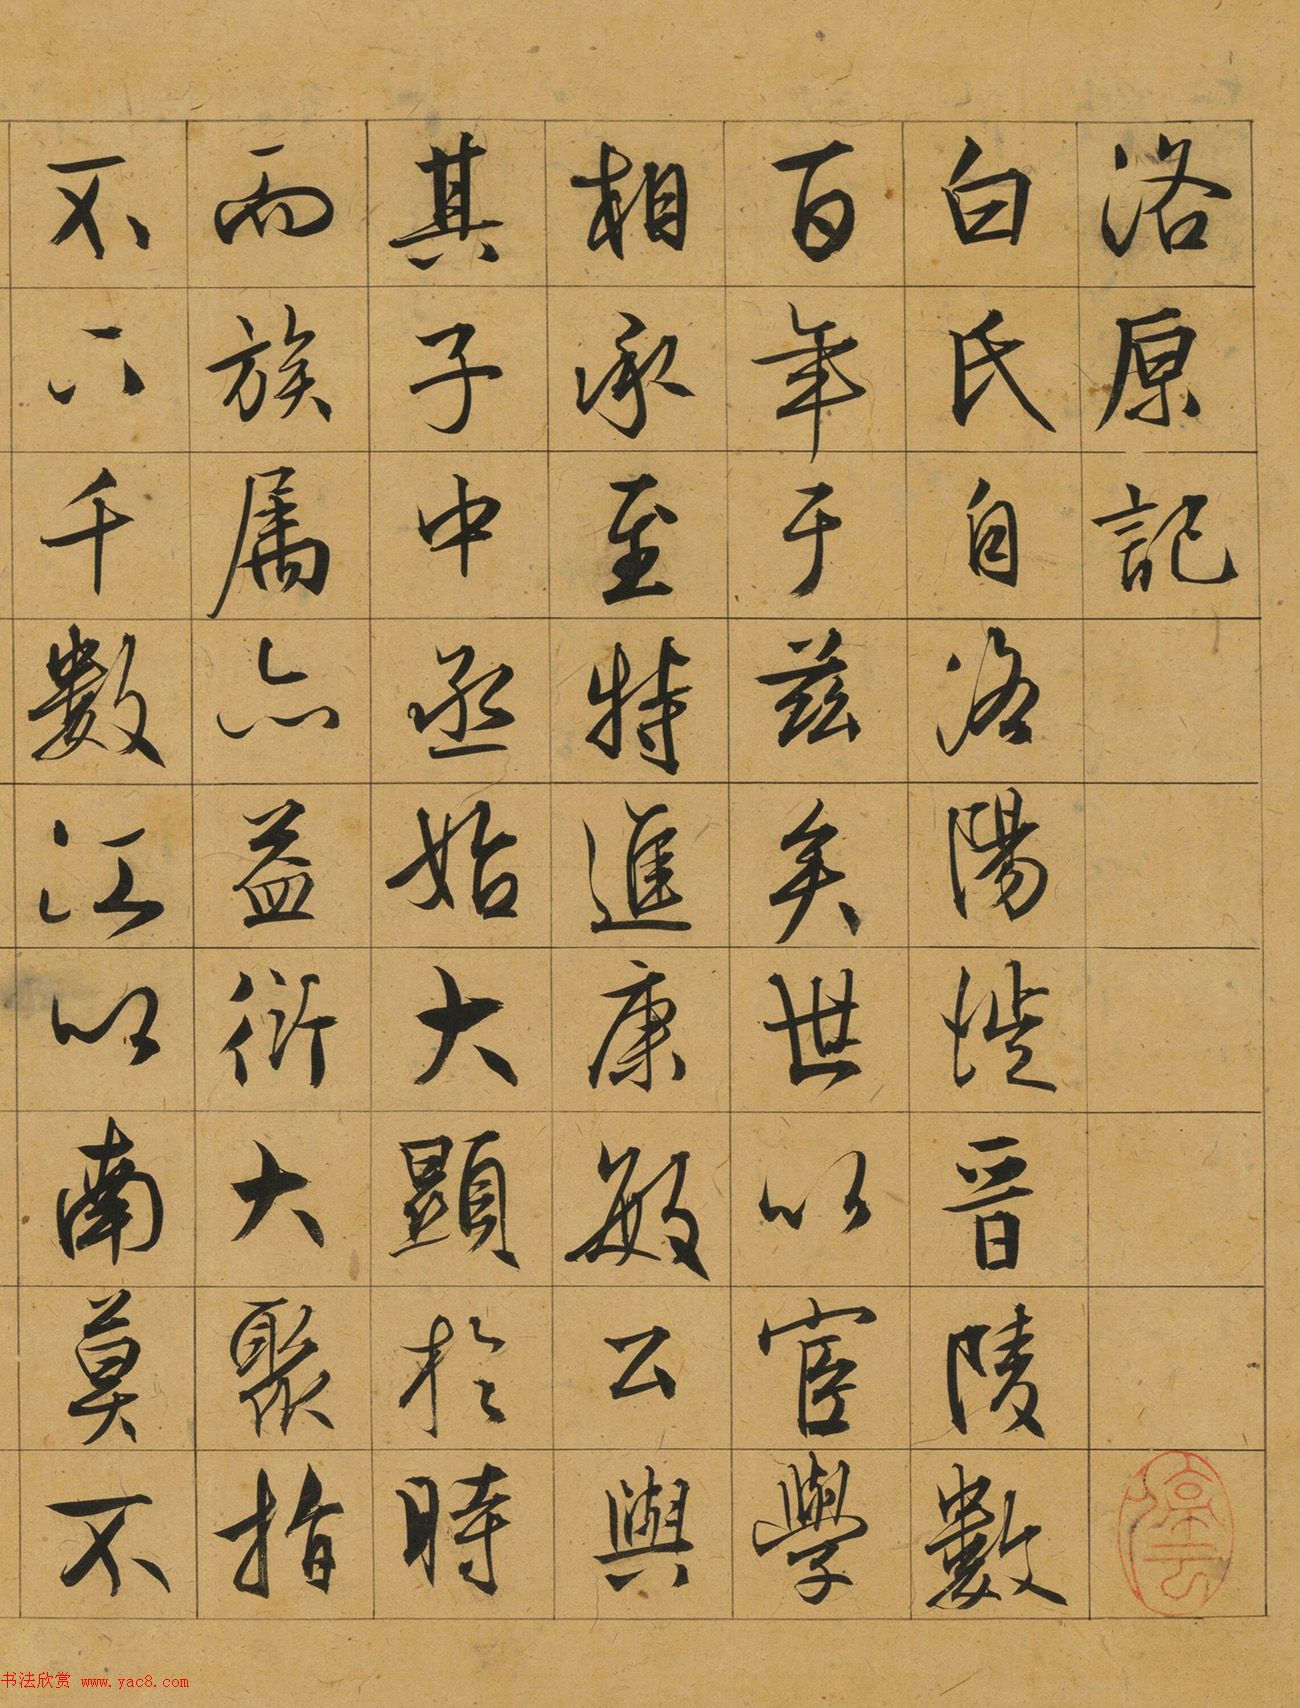 洛原記
白氏自洛陽徙晉陵數
百年于茲矣世以宦學
相承至特進康敏公與
其子中丞始大顯於時
而族属亦益衍大聚指
不下千數江以南莫不
书法欣赏 www.yac8.com